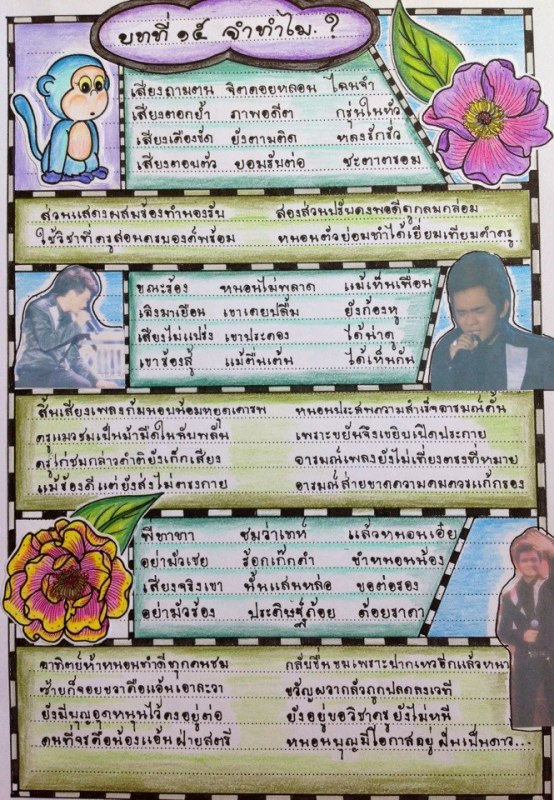 บทที่ ๑๕ จำทำไม.?
เสียงถามตน จิตคอยหลอน ไฉนจำ
เสียงตอกย้ำ ภาพอดีต กรุ่นในหัว
เสียงเตือนชัด ยังตามติด หลงรักรัว
เสียงตอบตัว ยอมรับต่อ ชะตาตรอม
ส่วนแสดงผสมร้องทำนองรับ สองส่วนปรับคงพอดีดูกลมกล่อม
ใช้วิชาที่ครูสอนครบองค์พร้อม หนอนตัวย่อมทำได้เยี่ยมเทียมคำครู
ขณะร้อง หนอนไม่พลาด แม้เห็นเพื่อน
เจิงมาเยือน เขาเคยปลื้ม ยังก้องหู
เสียงไม่แปร่ง เขาประคอง ได้น่าดู
เขาร้องสู้ แม้ตื่นเต้น ได้เห็นกัน
สิ้นเสียงเพลงก้มนอบน้อมหยุดเคารพ หนอนประสบความสำเร็จอารมณ์คั้น
ครูแมวชมเป็นม้ามืดในฉับพลัน เพราะขยันจึงเขยิบเปิดประกาย
ครูไก่ชมกล่าวคำติยังเก็กเสียง อารมณ์เพลงยังไม่เที่ยงตรงที่หมาย
แม้ร้องดีแต่ยังส่งไม่ตรงกาย อารมณ์ส่ายขาดความคมควรแก้กรอง
พี่ทาทา ชมว่าเท่ห์ แล้วหนอนเอ๋ย
อย่ามัวเชย ร้อกเก๊กดำ ช้ำหนอนน้อง
เสียงจริงเขา นั้นแสนหล่อ ขอต่อรอง
อย่ามัวร้อง ประดิษฐ์ถ้อย ด้อยราคา
อาทิตย์ห้าหนอนทำดีทุกคนชม กลับขื่นขมเพราะปากเหวอีกแล้วหนา
ซ้ายก็จอยขวาคือแอ้นเอาละวา ขวัญผวากลัวถูกปลดลงเวที
ยังมีบุญอุดหนุนไว้คงอยู่ต่อ ยังอยู่ขอวิชาครูยังไม่หนี
คนที่จรคือน้องแอ้นฝ่ายสตรี หนอนบุญมีโอกาสอยู่ ฝันเป็นดาว...